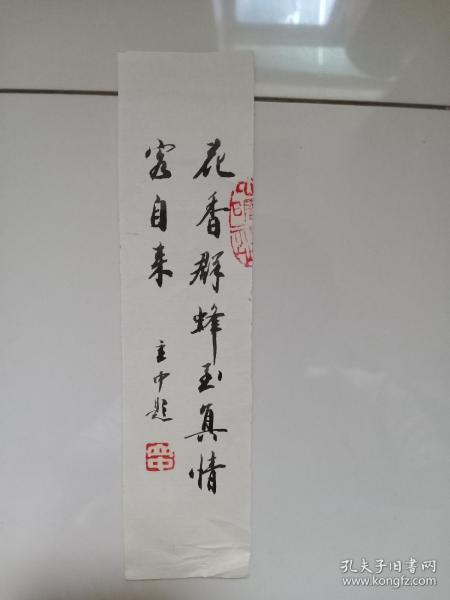 花香群蜂至真情
客自来
主中题
孔夫子旧书网
www.kongfz.com